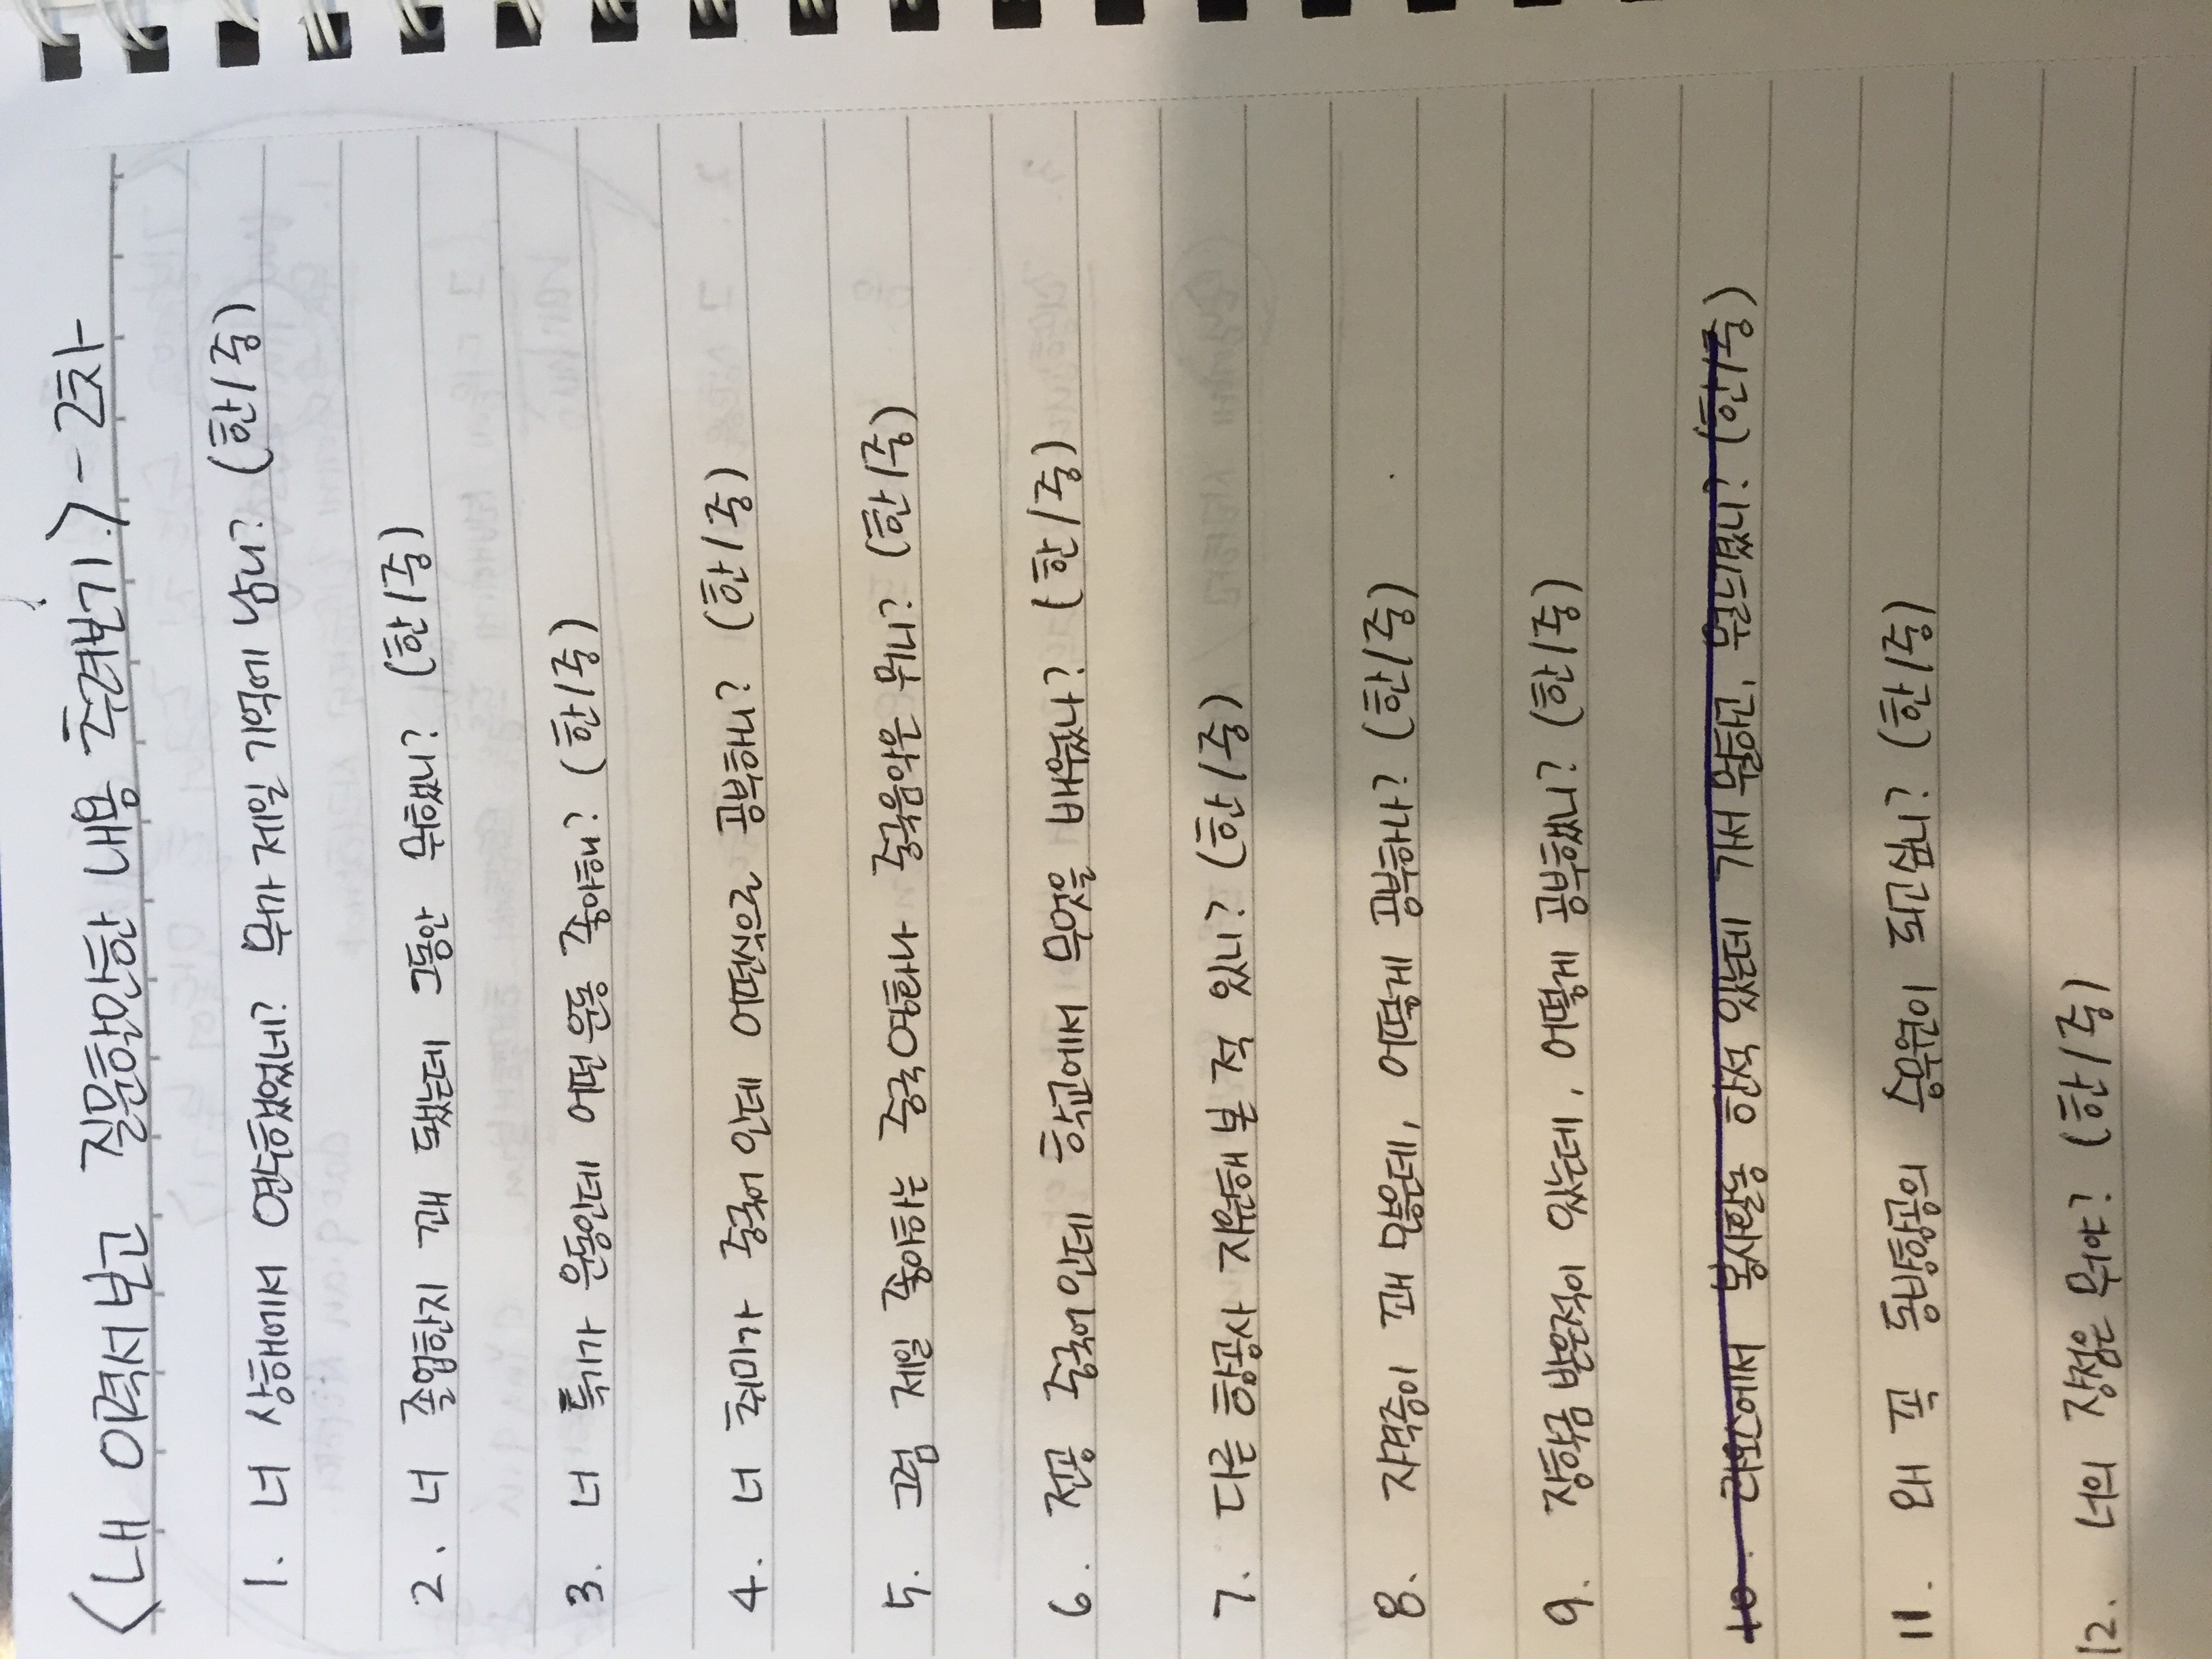 <내 이력서보고 질문할만한 내용 추려보기.> - 2차
1. 너 상해에서 연수했었네? 뭐가 제일 기억에 남니? (한/중)
2. 너 졸업한지 꽤 됐는데 그동안 뭐했니? (한/중)
3. 너 특기가 운동인데 어떤 운동 좋아해? (한/중)
4. 너 취미가 중국어인데 어떤식으로 공부해니? (한/중)
5. 그럼 제일 좋아하는 중국영화나 중국음악은 뭐니? (한/중)
6. 전공 중국어인데 학교에서 무엇을 배웠니? (한/중)
7. 다른 항공사 지원해 본 적 있니? (한/중)
8. 자격증이 꽤 많은데, 어떻게 공부하나? (한/중)
9. 장학금 받은적이 있는데, 어떻게 공부했니? (한/중)
10. 라오스에서 봉사활동 한적 있는데 가서 뭘하고, 뭘느꼈니? (한/중)
11. 왜 꼭 동방항공의 승무원이 되고싶니? (한/중)
12. 너의 장점은 뭐야? (한/중)